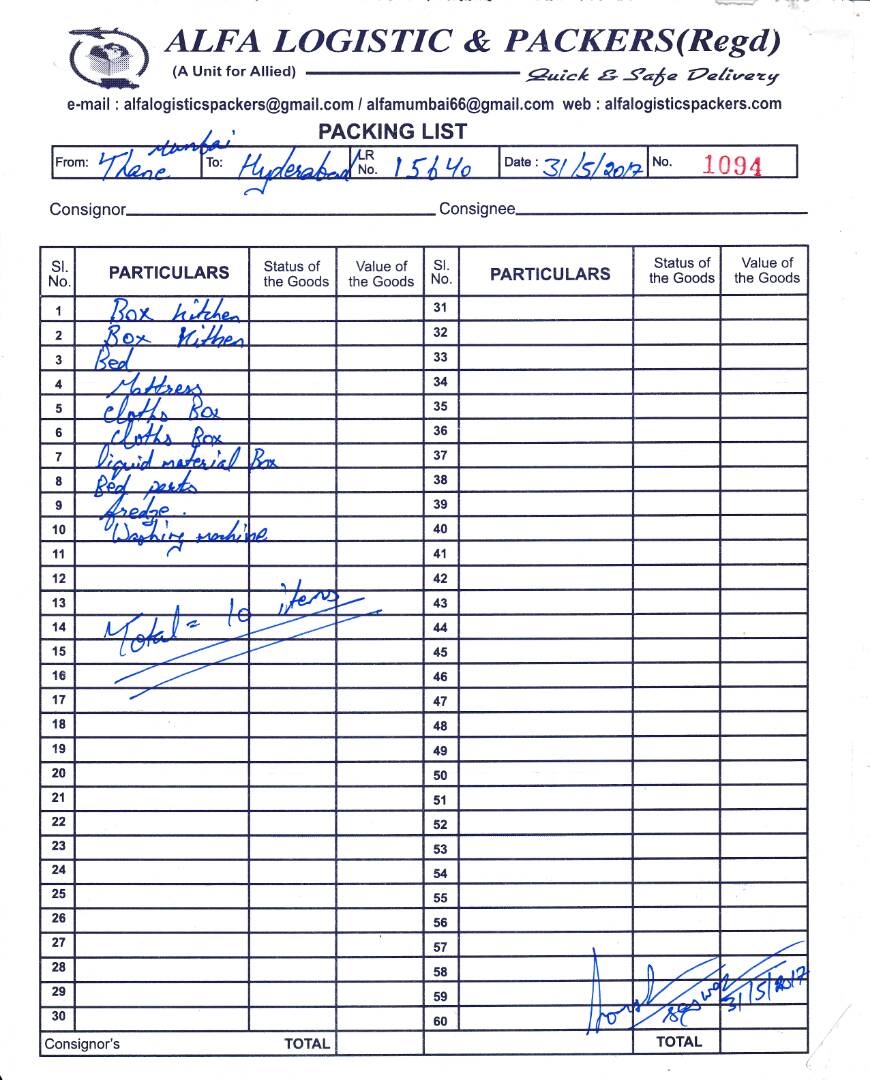 ALFA LOGISTIC & PACKERS(Regd)
(A Unit for Allied) Quick & Safe Delivery
e-mail : alfalogisticspackers@gmail.com / alfamumbai66@gmail.com web : alfalogisticspackers.com
PACKING LIST
From: Thane Mumbai To: Hyderabad LR No. 15640 Date : 31/5/2017 No. 1094
Consignor Consignee
Sl. No. PARTICULARS Status of the Goods Value of the Goods Sl. No. PARTICULARS Status of the Goods Value of the Goods
1 Box kitchen 31
2 Box Kithen 32
3 Bed 33
4 Mattress 34
5 cloths Box 35
6 cloths Box 36
7 liquid material Box 37
8 Bed parts 38
9 fredge. 39
10 Washing machine 40
11 41
12 42
13 43
14 Total = 10 items 44
15 45
16 46
17 47
18 48
19 49
20 50
21 51
22 52
23 53
24 54
25 55
26 56
27 57
28 58
29 59 31/5/2017
30 60
Consignor's TOTAL TOTAL